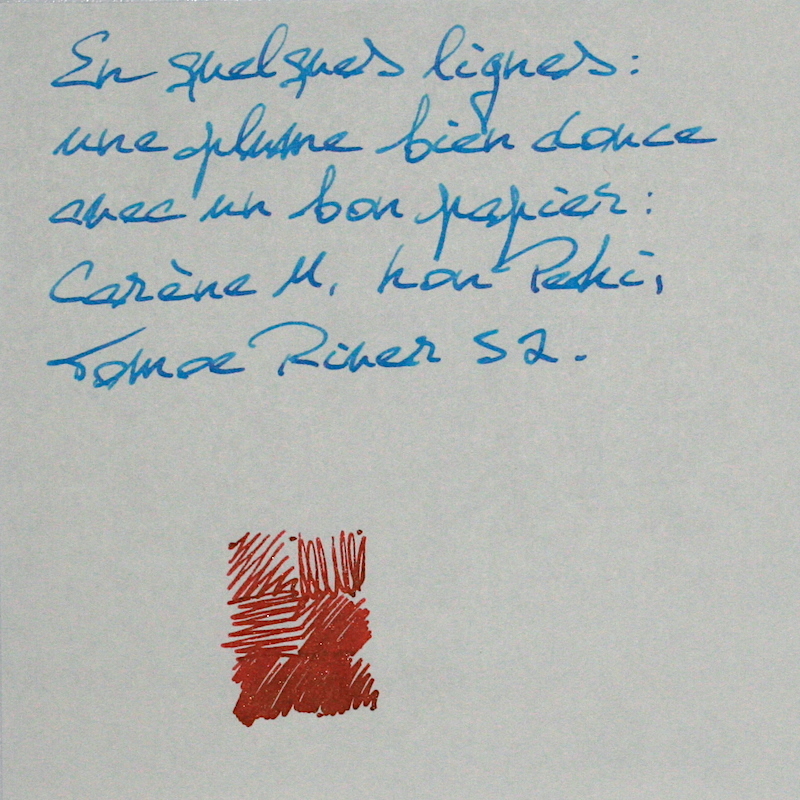 En quelques lignes:
une plume bien douce
avec un bon papier:
Carène M, kon Peki,
Tomoe River S2.